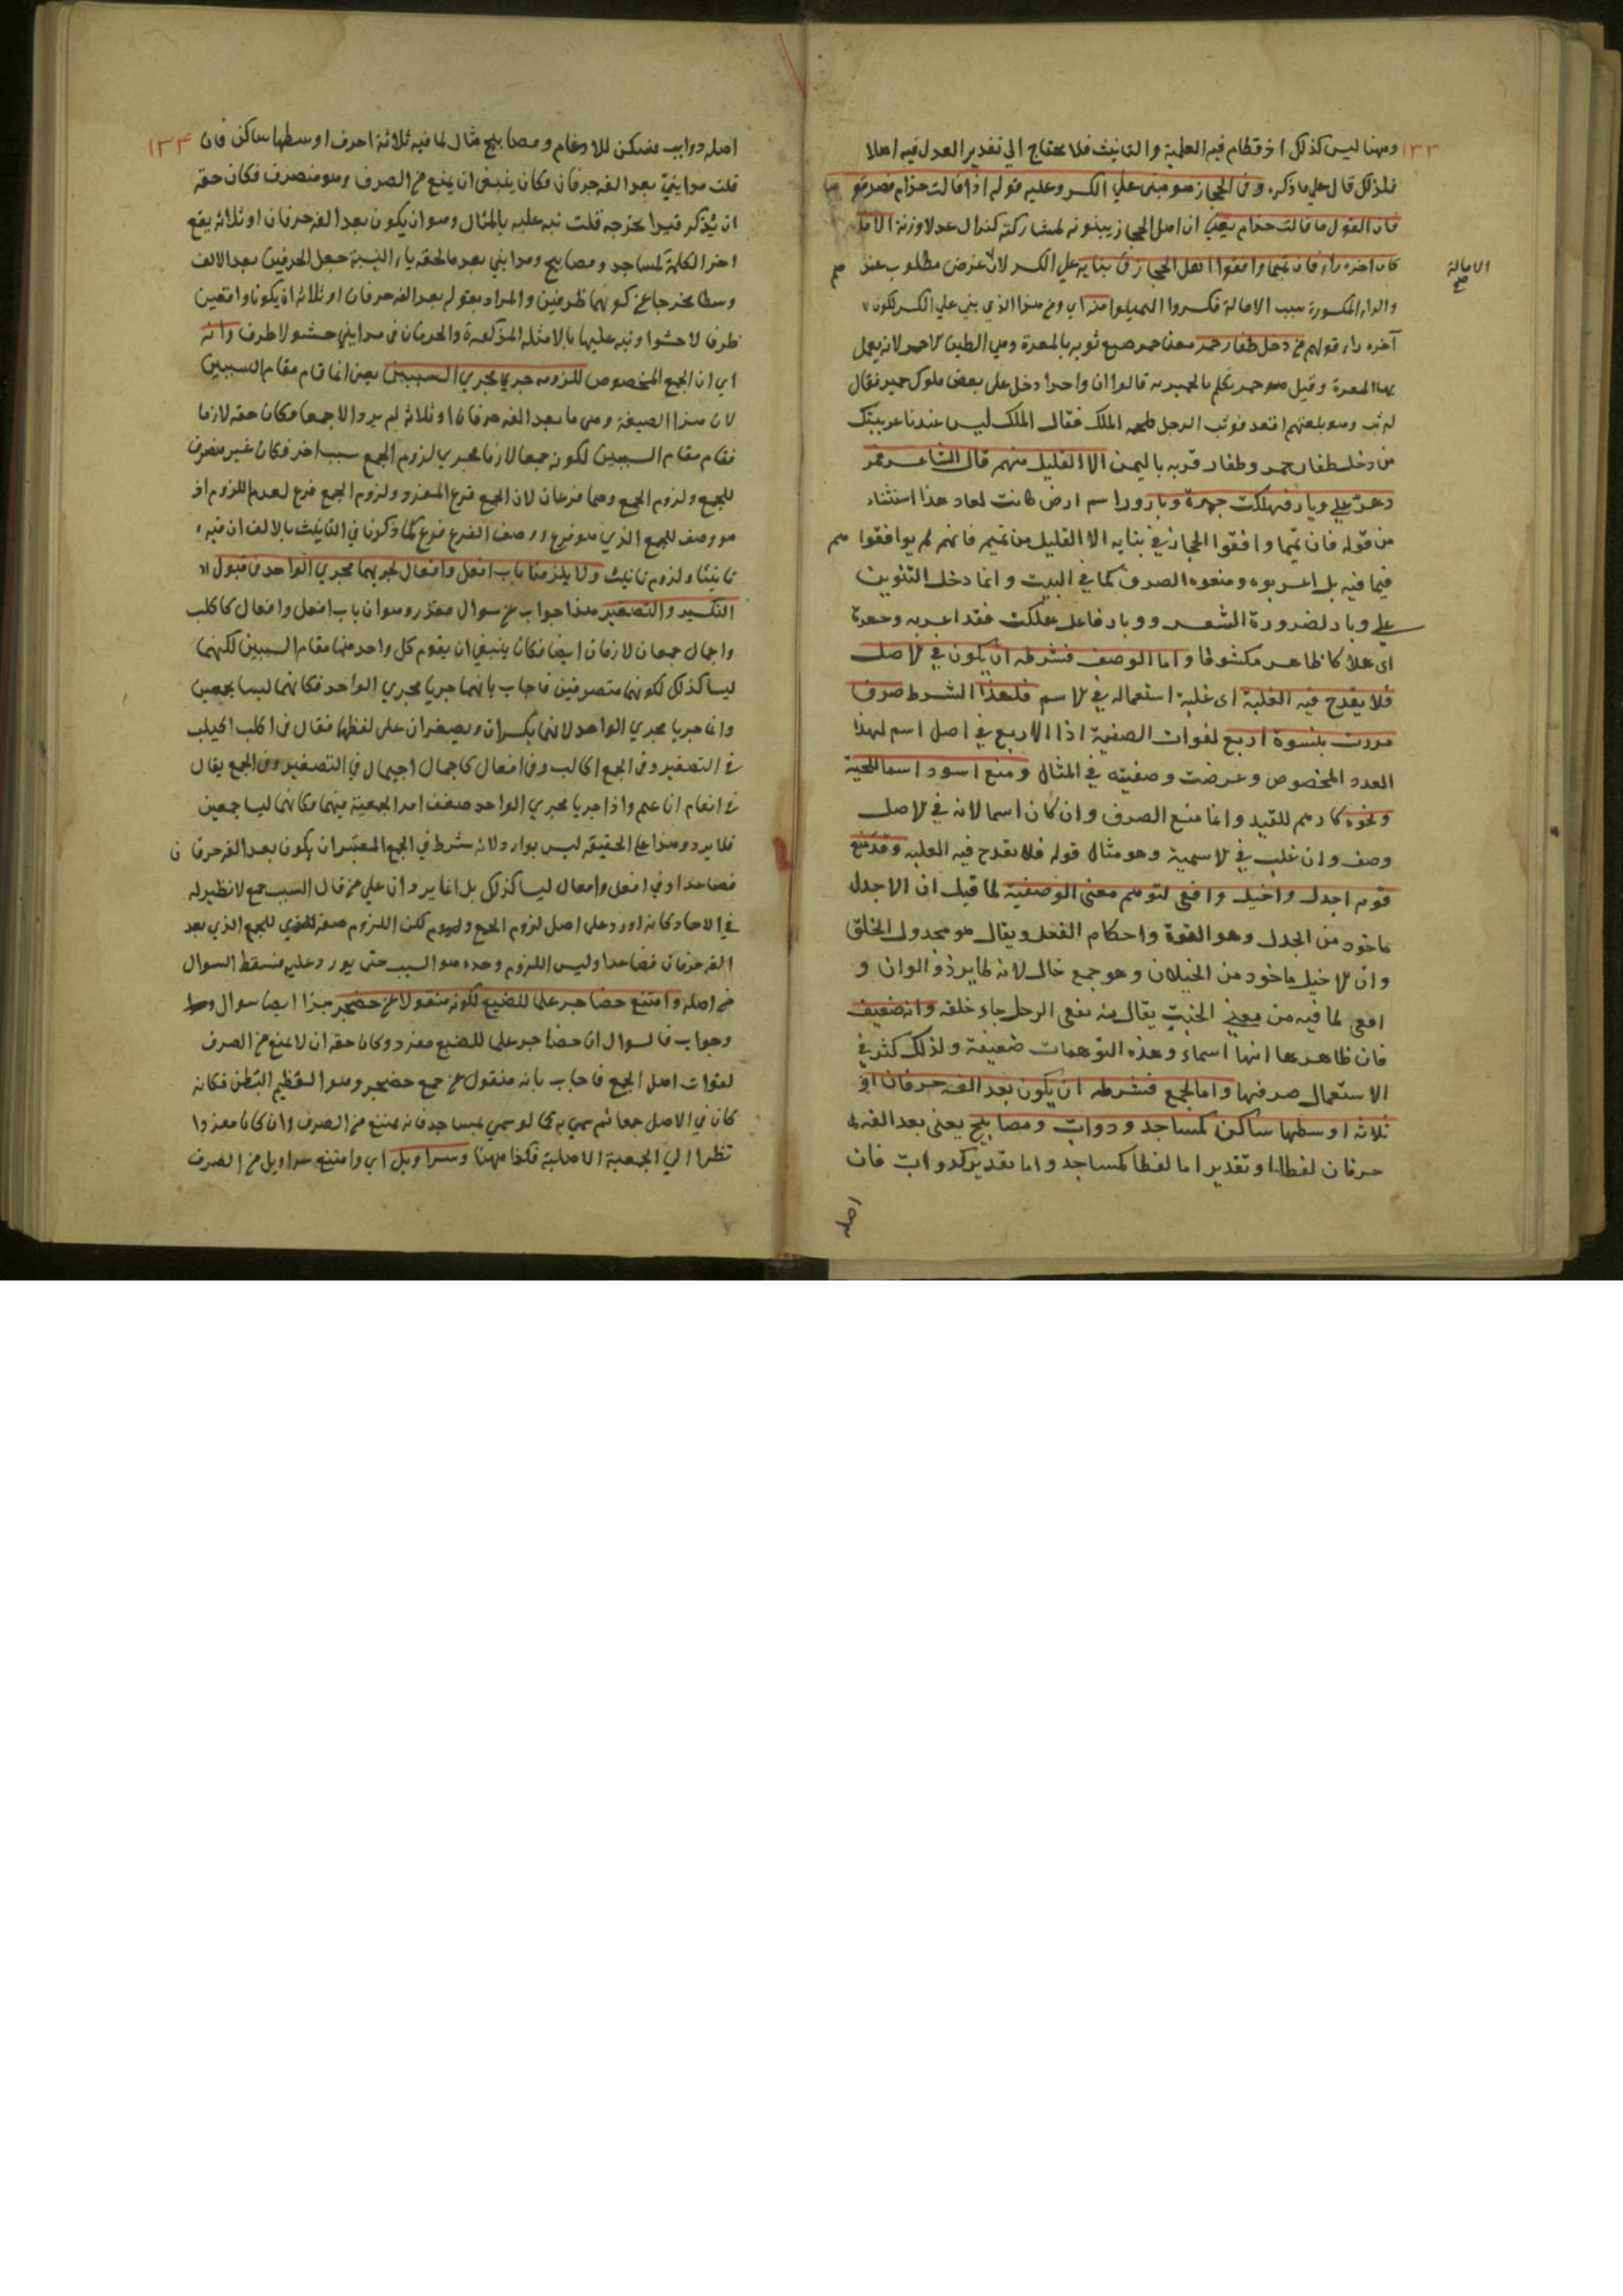 ١٣٣
ومهنا ليس كذلك اذ قطام فيه العلمية والتانيث فلا يحتاج الي تقدير العدل فيه اصلا
فلذلك قال علي ما ذكره وفي الحجاز هو مبني علي الكسر وعليه قوله اذا قالت حذام فصدقو ها
فان القول ما قالت حذام يعني ان اهل الحجاز يبنونه لمشاركته لنزال عدلا وزنة الا ما
كان اخره راء فان تميما وافقوا اهل الحجاز في بنايه علي الكسر لان غرض مطلوب عند هم
الامالة صح
والراء المكسورة سبب الامالة فكسروا ليميلوا منه اي ومن هذا الذي بني علي الكسر لكون
آخره راء قولهم من دخل ظفار حمر معنى حمر صبغ ثوبه بالمغرة وهي الطين الاحمر لانه يعمل
بها المغرة وقيل هو حمر تكلم بالحميريه قالوا ان واحدا دخل على بعض ملوك حمير فقال
له ثب وهو بلغتهم اقعد فوثب الرجل الملك فقال الملك ليس عندنا عربيتك
من دخل ظفار حمر وظفار قرية باليمن الا القليل منهم قال الشاعر فمر
دهر علي وبار فهلكت جهرة وبار وبار اسم ارض كانت لعاد هذا استثناء
من قوله فان تميما وافقوا الحجاز في بنايه الا القليل من تميم فانهم لم يوافقوا هم
فيما فيه بل اعربوه ومنعوه الصرف كما في البيت وانما دخل التنوين
علي وبار لضرورة الشعر ووبار فاعل هلكت فقد اعربه وجهرة
اي هلاكا ظاهر مكشوفا واما الوصف فشرطه ان يكون في الاصل
فلا يقدح فيه الغلبة اي غلبة استعماله في الاسم فلهذا الشرط صرف
مررت بنسوة اربع لفوات الصفية اذا الاربع في اصل اسم لهذا
العدد المخصوص وعرضت وصفيته في المثال ومنع اسود اسما للحية
ونحوه كادهم للقيد وانما منع الصرف وان كان اسما لانه في الاصل
وصف وان غلب في الاسمية وهو مثال قوله فلا يقدح فيه الغلبه وقد منع
قوم اجدل واخيل وافعي لتوهم معنى الوصفية لما قيل ان الاجدل
ماخود من الجدل وهو القوة واحكام الفتل ويقال هو مجدول الخلق
وان الاخيل ماخود من الخيلان وهو جمع خال لانه طاير ذو الوان و
افعي لما فيه من معني الخبث يقال منه تفعي الرجل جاء خلقه وانه ضعيف
فان ظاهرها انها اسماء وهذه التوهمات ضعيفة ولذلك كثر في
الاستعمال صرفها واما الجمع فشرطه ان يكون بعد الفه حرفان او
ثلاثه اوسطها ساكن كمساجد ودواب ومصابيح يعنى بعد الفه
حرفان لفظا او تقديرا اما لفظا كمساجد واما تقدير كدواب فان
اصله
١٣٤
اصله دوابب فسكن للادغام ومصابيح مثال لما فيه ثلاثة احرف اوسطها ساكن فان
قلت مدايني بعد الفه حرفان فكان ينبغي ان يمنع من الصرف وهو منصرف فكان حقه
ان يذكر قيدا يخرجه قلت نبه عليه بالمثال وهو ان يكون بعد الفه حرفان او ثلاثه يقع
اخر الكلمة لمساجد ومصابيح ومدايني بعد ما لحقه ياء النسبة جعل الحرفين بعد الالف
وسطا يخرجا عن كونهما طرفين والمراد بقوله بعد الفه حرفان او ثلاثه ان يكونا واقعين
طرفا لا حشوا ونبه عليها بالامثله المذكورة والحرفان في مدايني حشو لا طرف وانه
اي ان الجمع المخصوص للزومه جري مجري السببين يعني انما قام مقام السببين
لان هذا الصيغة وهي ما بعد الفه حرفان او ثلاثه لم يرد الا جمعا فكان حقه لازما
فقام مقام السببين لكونه جمعا لازما فجري لزوم الجمع سببا اخر فكان غير منصرف
للجمع ولزوم الجمع وهما فرعان لان الجمع فرع المفرد ولزوم الجمع فرع لعدم اللزوم اذ
هو وصف للجمع الذي هو فرع ووصف الفرع فرع كما ذكرنا في التانيث بالالف ان فيه
تانيثا ولزوم تانيث ولا يلزمنا باب افعل وافعال لجريهما مجري الواحد في قبول
التكسير والتصغير هذا جواب عن سوال مقدر وهو ان باب افعل وافعال كاكلب
واجمال جمعان لازمان ايضا فكان ينبغي ان يقوم كل واحد منهما مقام السببين لكنهما
ليسا كذلك لكونهما منصرفين فاجاب بانهما جريا مجري الواحد فكانهما ليسا بجمعين
وانما جريا مجري الواحد لانهما يكسران ويصغران على لفظهما فقال في اكلب اكيلب
في التصغير وفي الجمع اكالب وفي افعال كاجمال اجيمال في التصغير وفي الجمع يقال
في انعام اناعيم واذا جريا مجري الواحد ضعف امر الجمعية فيهما فكانهما ليسا جمعين
فلا يرد وهذا على الحقيقه ليس بوارد لانه شرط في الجمع المعتبر ان يكون بعد الفه حرفا ن
فصاعدا وفي افعل وافعال ليسا كذلك بل انما يرد ان علي من قال السبب جمع لا نظير له
في الاحاد كانه اورد على اصل لزوم الجمع لكن اللزوم صفة للجمع الذي بعد
الفه حرفان فصاعدا وليس اللزوم وحده هو السبب حتى يورد عليه فسقط السوال
من اصله وامتنع حضاجر علما للضبع لكونه منقولا عن حضجر هذا ايضا سوال
وجواب فالسوال ان حضاجر علي للضبع مفرد وكان حقه ان لا يمنع من الصرف
لفوات اصل الجمع فاجاب بانه منقول عن جمع حضجر وهو العظيم البطن فكانه
كان في الاصل جمعا ثم سمي به كما لو سمي بمساجد فانه يمتنع من الصرف وان كان مفردا
نظرا الي الجمعية الاصلية فكذا مهنا وسراويل اي وامتنع سراويل من الصرف